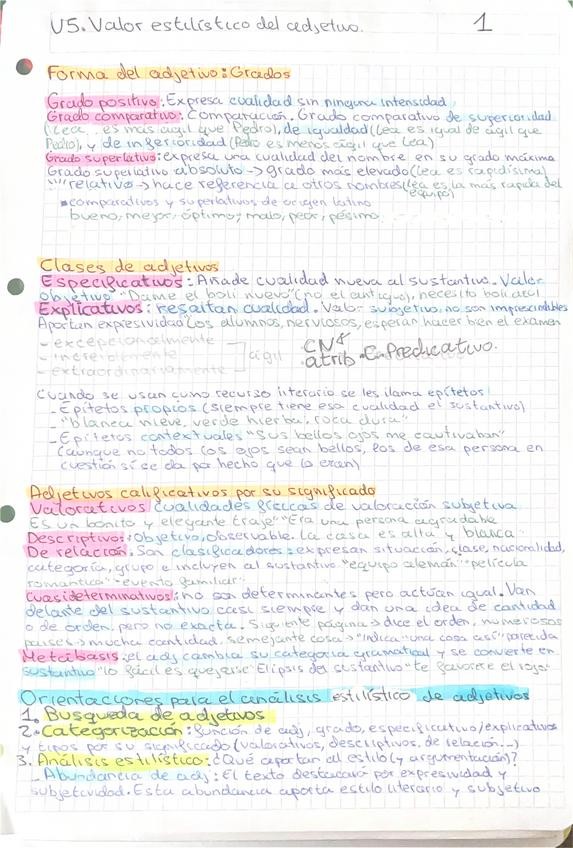 U5. Valor estilístico del adjetivo. 1
Forma del adjetivo: Grados
Grado positivo: Expresa cualidad sin ninguna intensidad
Grado comparativo: Comparación. Grado comparativo de superioridad
(Lea es más ágil que Pedro), de igualdad (Lea es igual de ágil que
Pedro), y de inferioridad (Pedro es menos ágil que Lea)
Grado superlativo: expresa una cualidad del nombre en su grado máximo
Grado superlativo absoluto → grado más elevado (Lea es rapidísima)
"" "" relativo → hace referencia a otros nombres (Lea es la más rápida del
equipo)
comparativos y superlativos de origen latino
bueno, mejor, óptimo; malo, peor, pésimo
Clases de adjetivos
Especificativos: Añade cualidad nueva al sustantivo. Valor
objetivo "Dame el boli nuevo" (no el antiguo), necesito boli azul
Explicativos: resaltan cualidad. Valor subjetivo, no son imprescindibles
Aportan expresividad "Los alumnos, nerviosos, esperan hacer bien el examen
- excepcionalmente
- increíblemente ágil
- extraordinariamente
CN
atrib C. Predicativo.
Cuando se usan como recurso literario se les llama epítetos:
- Epítetos propios (siempre tiene esa cualidad el sustantivo)
- "blanca nieve, verde hierba, roca dura"
- Epítetos contextuales "Sus bellos ojos me cautivaban"
(aunque no todos los ojos sean bellos, los de esa persona en
cuestión sí se da por hecho que lo eran)
Adjetivos calificativos por su significado
Valorativos cualidades físicas de valoración subjetiva
Es un bonito y elegante traje" "Era una persona agradable
Descriptivos: objetivo, observable. La casa es alta y blanca
De relación: Son clasificadores: expresan situación, clase, nacionalidad,
categoría, grupo e incluyen al sustantivo "equipo alemán" "película
romántica" "evento familiar"
Cuasideterminativos: no son determinantes pero actúan igual. Van
delante del sustantivo casi siempre y dan una idea de cantidad
o de orden, pero no exacta. Siguiente página → dice el orden, numerosos
países → mucha cantidad. semejante cosa → "indica "una cosa así" parecida
Metábasis: el adj cambia su categoría gramatical y se convierte en
sustantivo "lo fácil es quejarse" Elipsis del sustantivo "te favorece el rojo"
Orientaciones para el análisis estilístico de adjetivos
1. Busqueda de adjetivos
2. Categorización: función de adj, grado, especificativo/explicativos
y tipos por su significado (valorativos, descriptivos, de relación...)
3. Análisis estilístico: ¿Qué aportan al estilo (y argumentación)?
- Abundancia de adj: El texto destacará por expresividad y
subjetividad. Esta abundancia aporta estilo literario y subjetivo